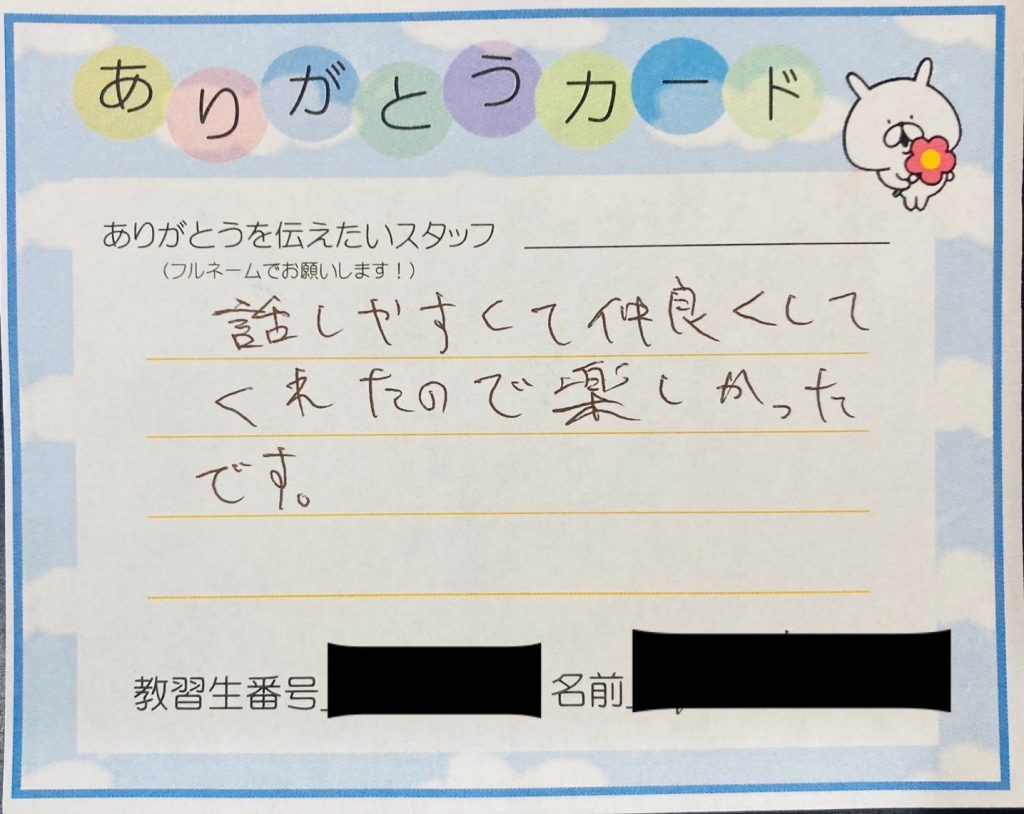 ありがとうカード
ありがとうを伝えたいスタッフ
(フルネームでお願いします!)
話しやすくて仲良くして
くれたので楽しかった
です。
教習生番号 名前